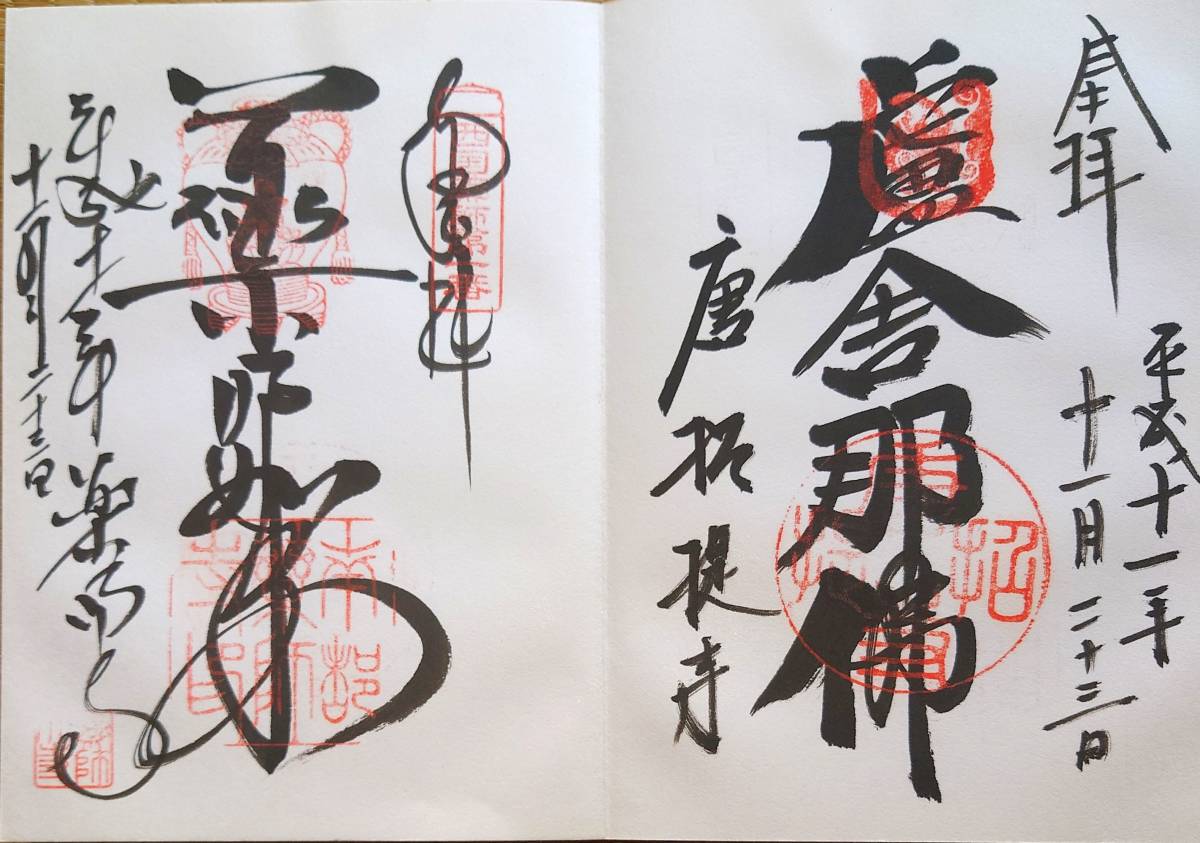 奉拝
平成十一年
十一月二十三日
盧舎那佛
唐招提寺
奉拝
西国薬師第一番
薬師如来
平成十一年 薬師寺
十一月二十三日